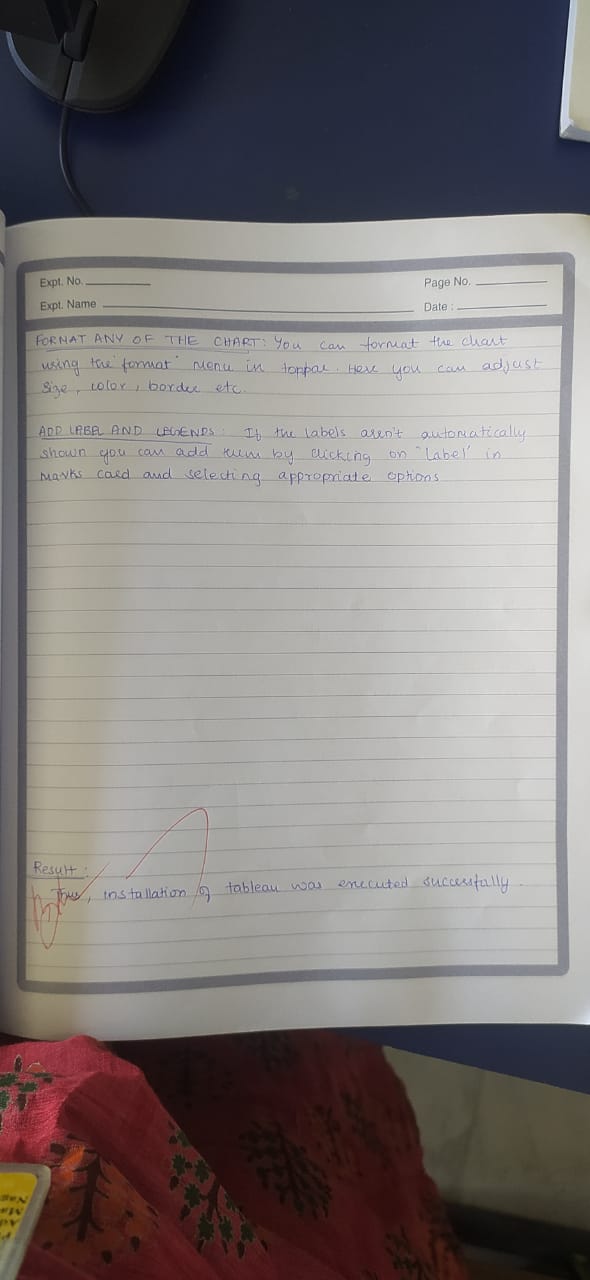 Expt. No.
Page No.
Expt. Name
Date :
FORMAT ANY OF THE CHART: You can format the chart
using the 'format' menu in toppar. Here you can adjust
size, color, border etc.
ADD LABEL AND LEGENDS: If the labels aren't automatically
shown you can add them by clicking on 'Label' in
Marks card and selecting appropriate options
Result :
Thus, installation of tableau was executed successfully.